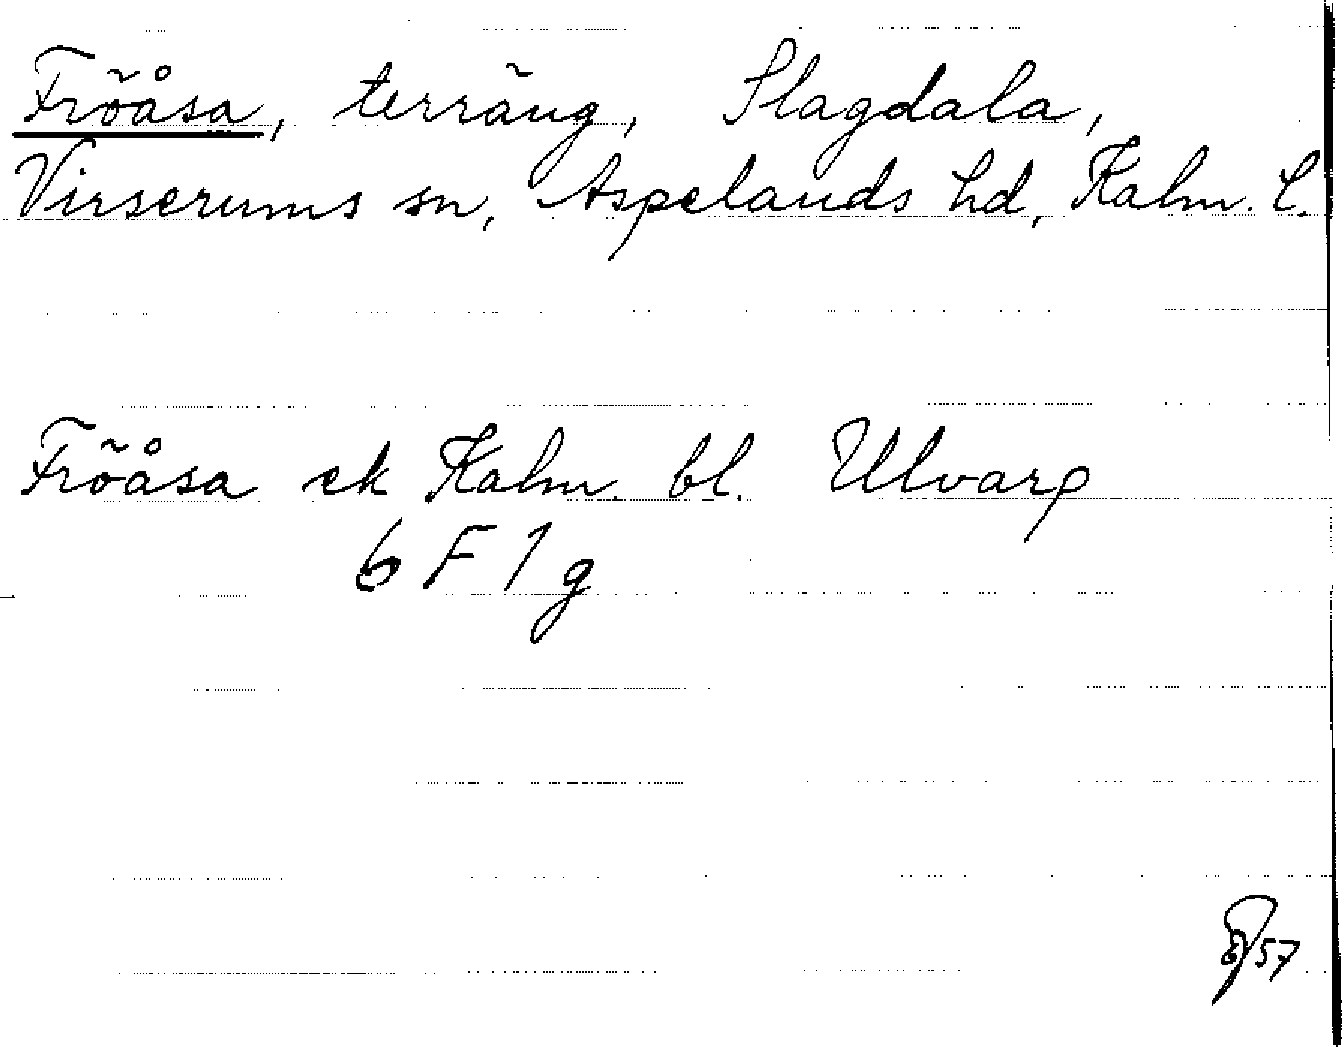 Fröåsa, terräng, Slagdala,
Virserums sn, Aspelands hd, Kalm. l.
Fröåsa ek Kalm. bl. Ulvarp
6 F 1 g
57